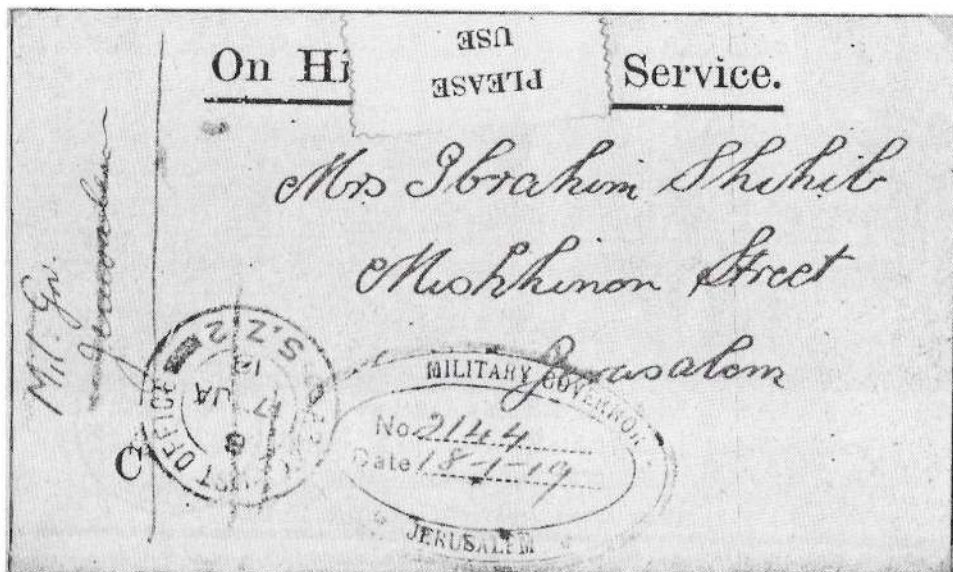 USE
PLEASE
On Hi Service.
Mrs Ibrahim Shihib
Mishkinon Street
Jerusalem
Mil. Gov.
Jerusalem
POST OFFICE
S.Z.2
17 JA
C
MILITARY GOVERNOR
No 2144
Date 18-1-19
JERUSALEM